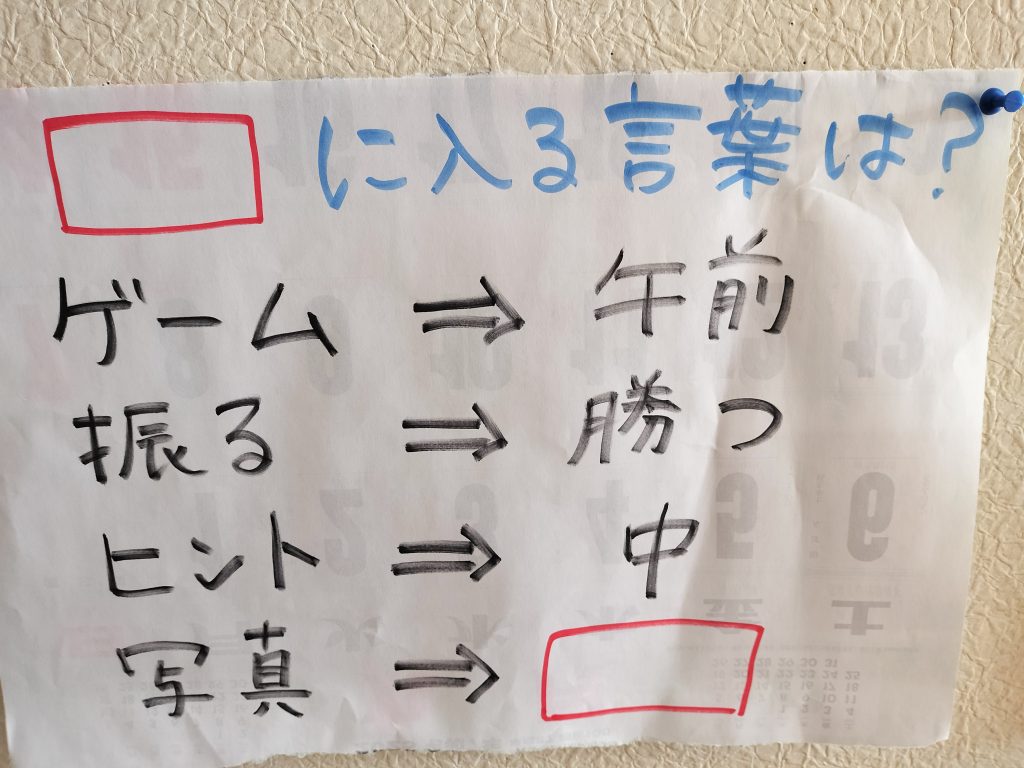 □に入る言葉は?
ゲーム ⇒ 午前
振る ⇒ 勝つ
ヒント ⇒ 中
写真 ⇒ □